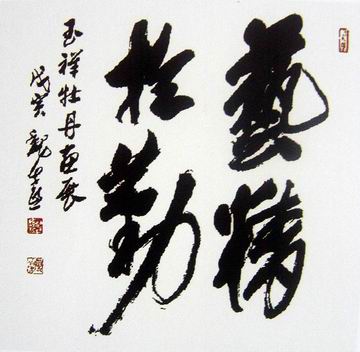 藝精
於勤
玉祥牡丹画展
戊寅 魏